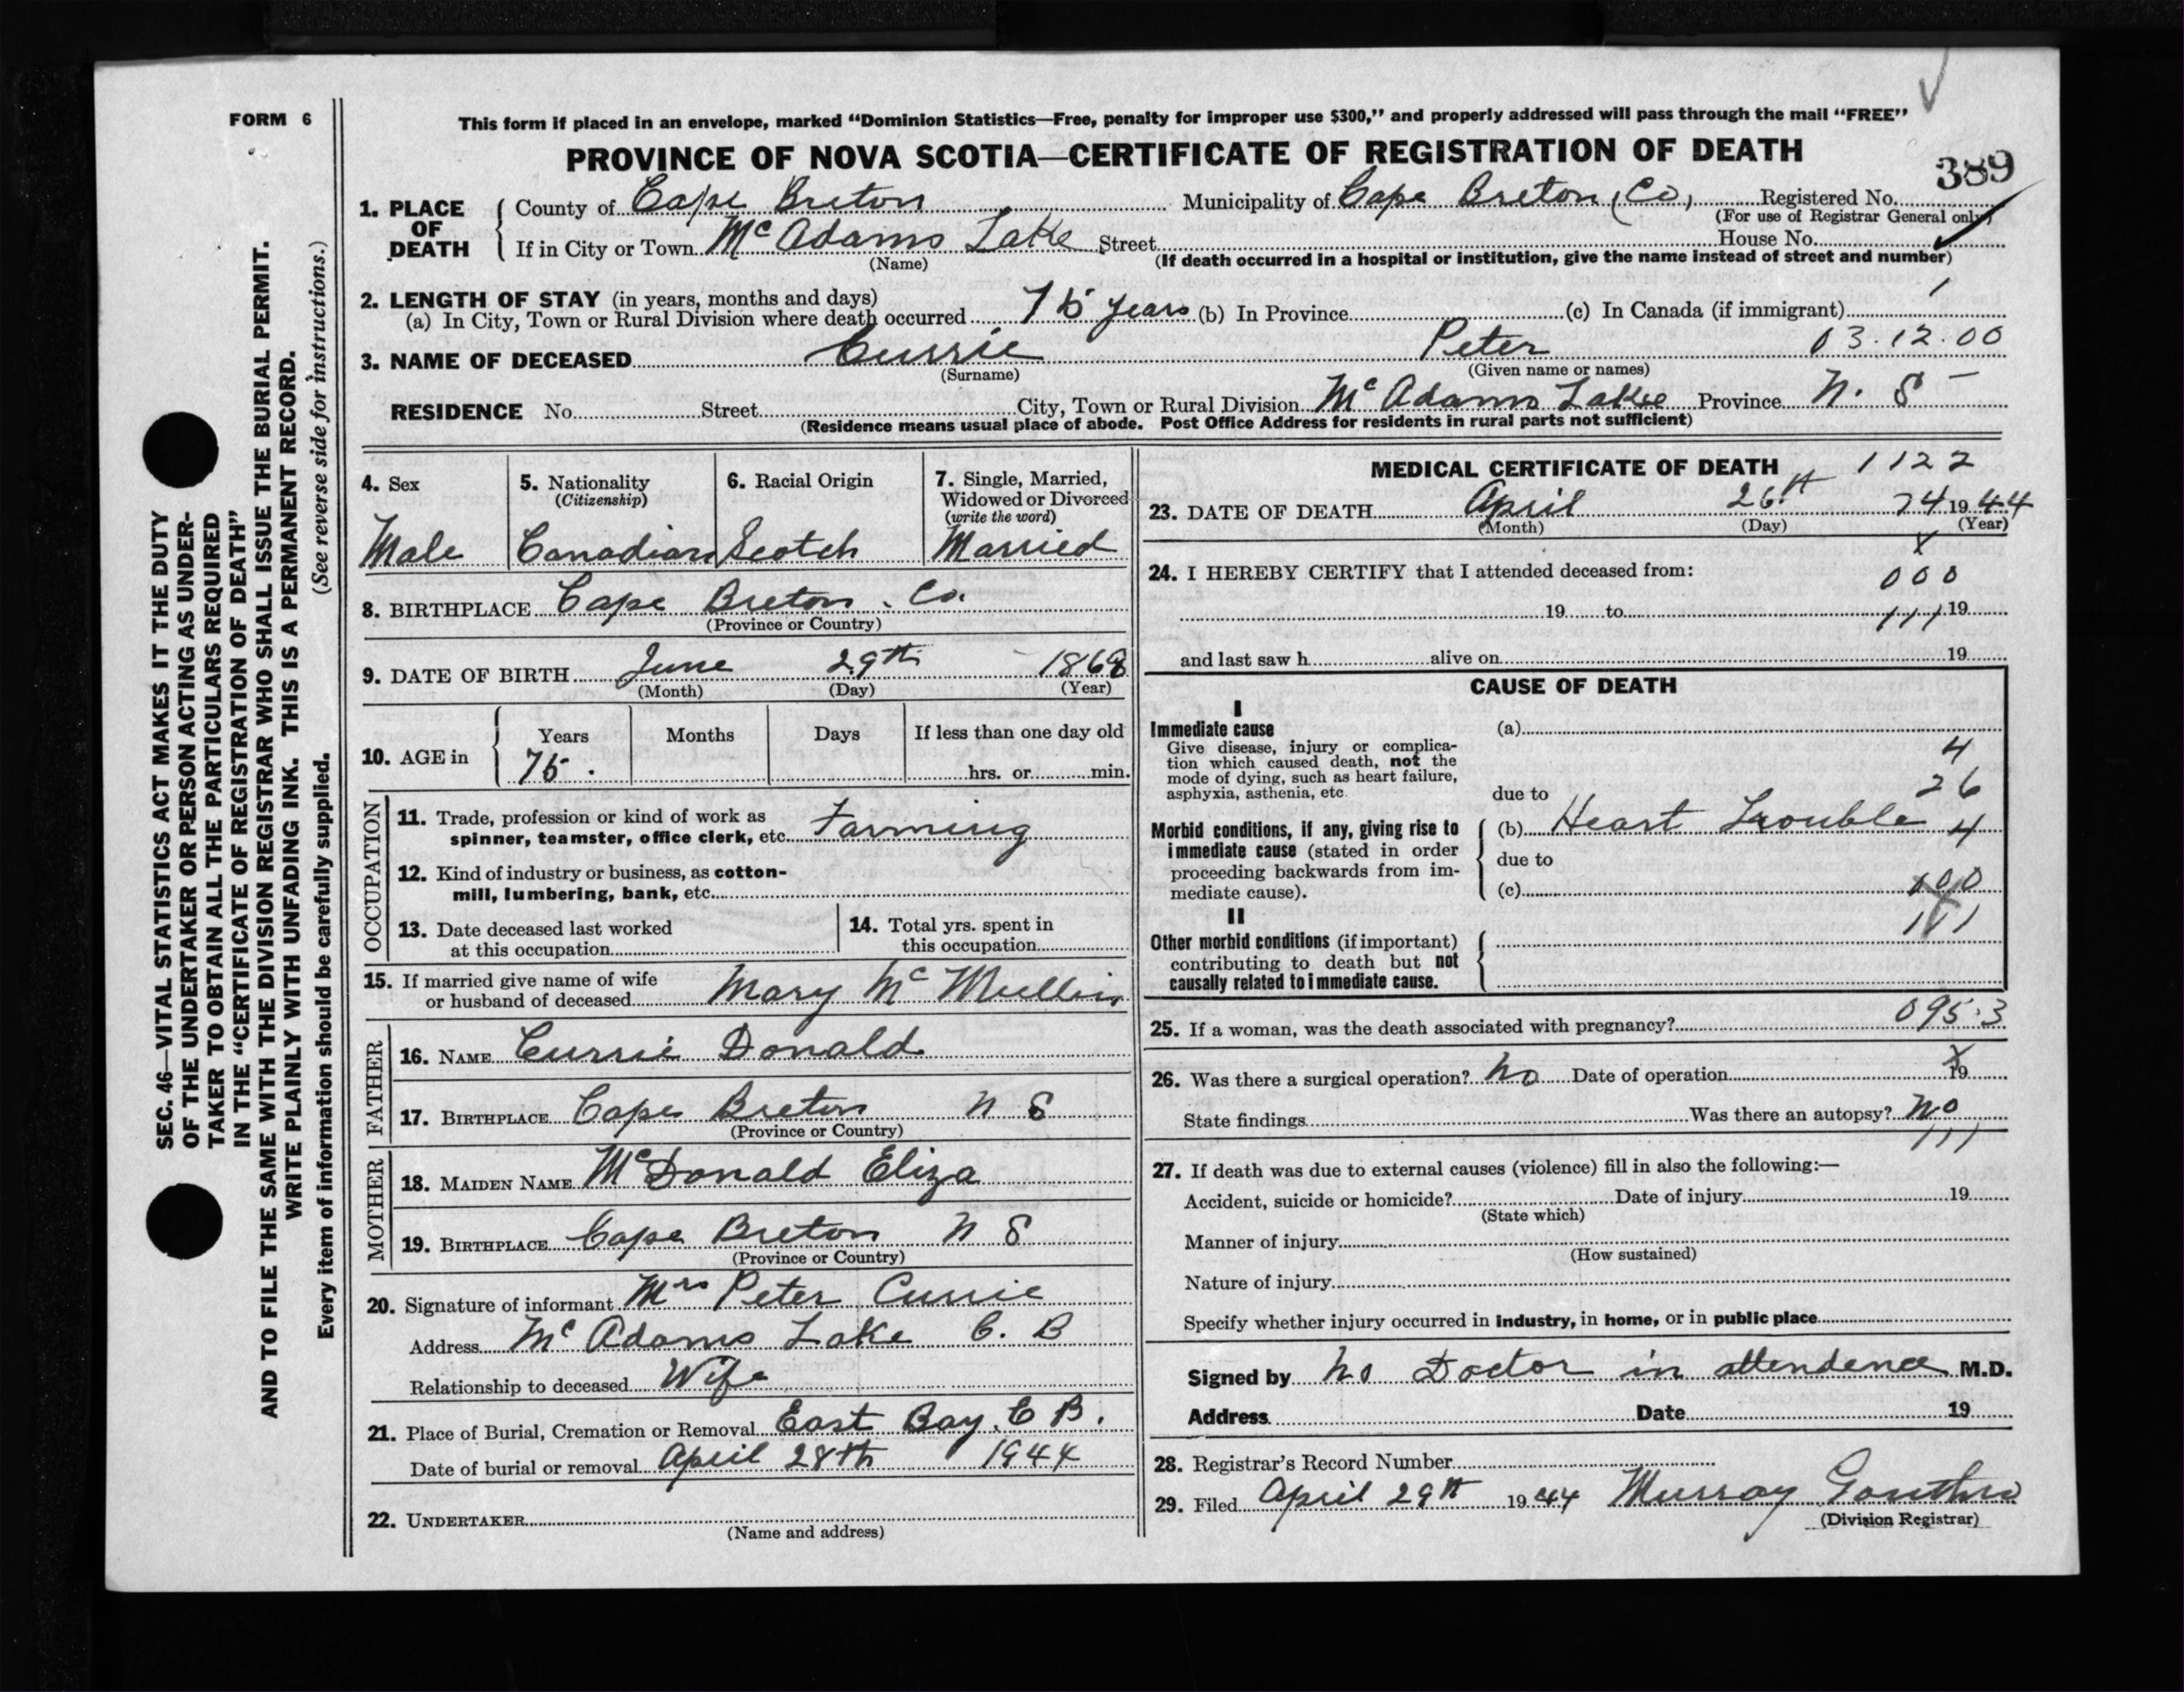 FORM 6
This form if placed in an envelope, marked "Dominion Statistics—Free, penalty for improper use $300," and properly addressed will pass through the mail "FREE"
PROVINCE OF NOVA SCOTIA—CERTIFICATE OF REGISTRATION OF DEATH
389
1. PLACE OF DEATH
County of Cape Breton Municipality of Cape Breton (Co) Registered No.
(For use of Registrar General only)
If in City or Town Mc Adams Lake Street House No.
(Name) (If death occurred in a hospital or institution, give the name instead of street and number)
2. LENGTH OF STAY (in years, months and days)
(a) In City, Town or Rural Division where death occurred 75 years (b) In Province (c) In Canada (if immigrant)
3. NAME OF DECEASED Currie Peter 03.12.00
(Surname) (Given name or names)
RESIDENCE No. Street City, Town or Rural Division Mc Adams Lake Province N. S
(Residence means usual place of abode. Post Office Address for residents in rural parts not sufficient)
4. Sex
Male
5. Nationality
(Citizenship)
Canadian
6. Racial Origin
Scotch
7. Single, Married,
Widowed or Divorced
(write the word)
Married
8. BIRTHPLACE Cape Breton. Co.
(Province or Country)
9. DATE OF BIRTH June 29th 1868
(Month) (Day) (Year)
10. AGE in
Years Months Days If less than one day old
75. hrs. or min.
OCCUPATION
11. Trade, profession or kind of work as
spinner, teamster, office clerk, etc. Farming
12. Kind of industry or business, as cotton-
mill, lumbering, bank, etc.
13. Date deceased last worked
at this occupation
14. Total yrs. spent in
this occupation
15. If married give name of wife
or husband of deceased Mary Mc Mullin
FATHER
16. NAME Currie Donald
17. BIRTHPLACE Cape Breton N S
(Province or Country)
MOTHER
18. MAIDEN NAME McDonald Eliza
19. BIRTHPLACE Cape Breton N S
(Province or Country)
20. Signature of informant Mrs Peter Currie
Address Mc Adams Lake C. B
Relationship to deceased Wife
21. Place of Burial, Cremation or Removal East Bay. C B.
Date of burial or removal April 28th 1944
22. UNDERTAKER
(Name and address)
MEDICAL CERTIFICATE OF DEATH 1122
23. DATE OF DEATH April 26th 74 1944
(Month) (Day) (Year)
24. I HEREBY CERTIFY that I attended deceased from:
000
19 to 111 19
and last saw h alive on 19
CAUSE OF DEATH
I
Immediate cause
Give disease, injury or complica-
tion which caused death, not the
mode of dying, such as heart failure,
asphyxia, asthenia, etc
(a)
4
26
due to
Morbid conditions, if any, giving rise to
immediate cause (stated in order
proceeding backwards from im-
mediate cause).
(b) Heart Trouble 4
due to
(c)
II
111
Other morbid conditions (if important)
contributing to death but not
causally related to immediate cause.
25. If a woman, was the death associated with pregnancy? 095.3
26. Was there a surgical operation? No Date of operation 19
State findings Was there an autopsy? No
111
27. If death was due to external causes (violence) fill in also the following:—
Accident, suicide or homicide? Date of injury 19
(State which)
Manner of injury
(How sustained)
Nature of injury
Specify whether injury occurred in industry, in home, or in public place
Signed by No Doctor in attendence M.D.
Address Date 19
28. Registrar's Record Number
29. Filed April 29th 1944 Murray Gouthro
(Division Registrar)
SEC. 46—VITAL STATISTICS ACT MAKES IT THE DUTY
OF THE UNDERTAKER OR PERSON ACTING AS UNDER-
TAKER TO OBTAIN ALL THE PARTICULARS REQUIRED
IN THE "CERTIFICATE OF REGISTRATION OF DEATH"
AND TO FILE THE SAME WITH THE DIVISION REGISTRAR WHO SHALL ISSUE THE BURIAL PERMIT.
WRITE PLAINLY WITH UNFADING INK. THIS IS A PERMANENT RECORD.
Every item of information should be carefully supplied. (See reverse side for instructions.)